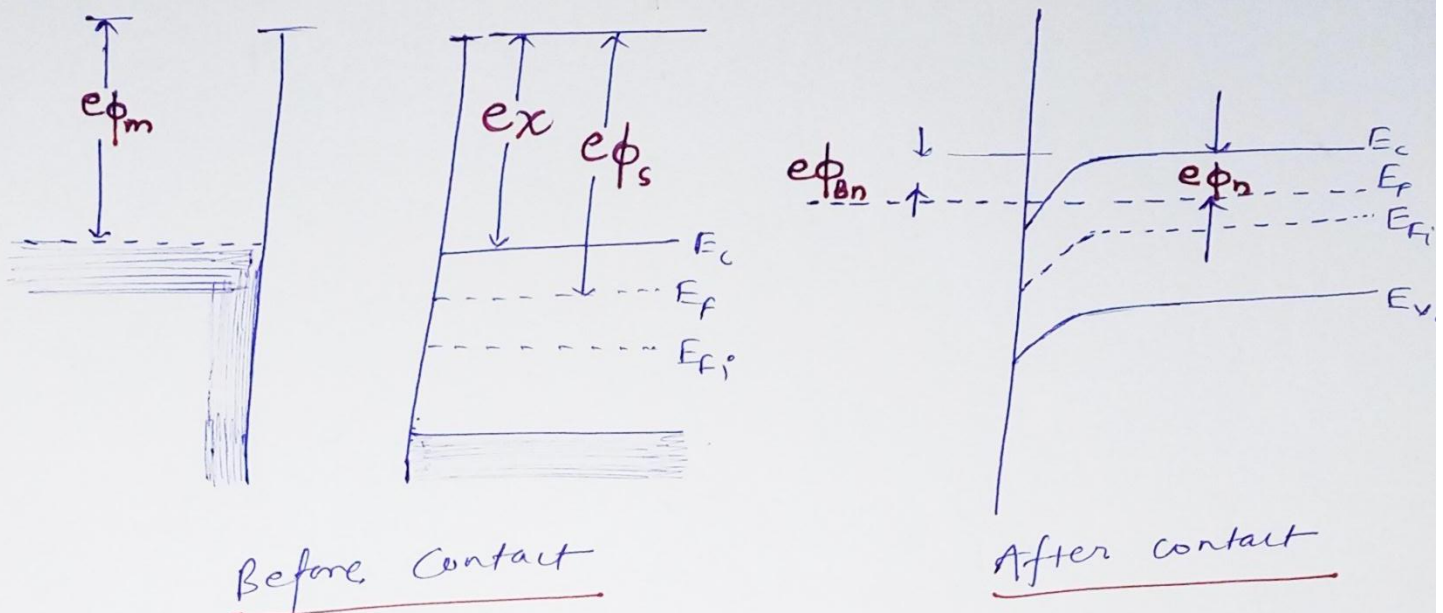 eϕm
eχ
eϕs
Ec
EF
EFi
Before Contact
eϕBn
eϕn
Ec
EF
EFi
Ev
After contact